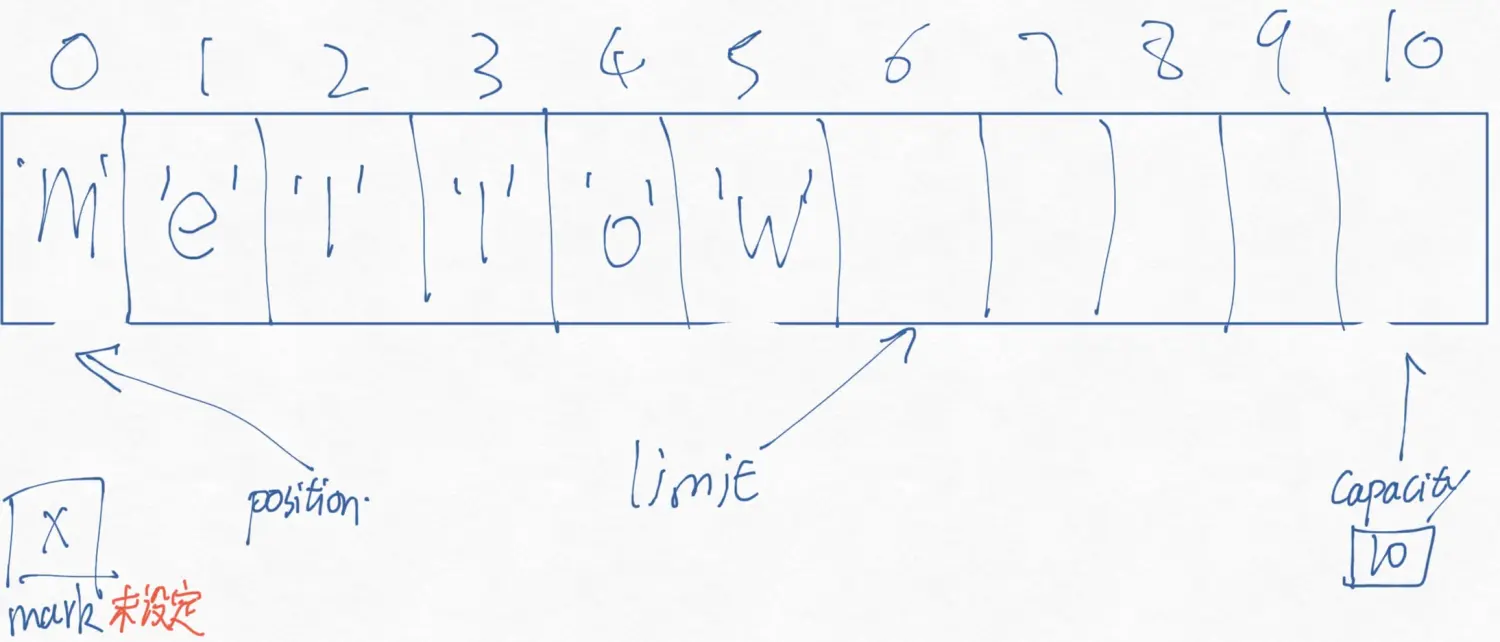 0 1 2 3 4 5 6 7 8 9 10
'M' 'e' 'l' 'l' 'o' 'w'
position.
limit
capacity
X
10
mark 未设定